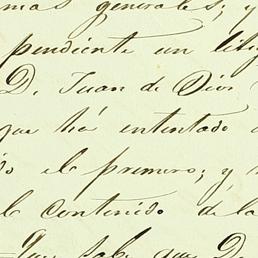 mas generales; y
pendiente un liti
D. Juan de Dios
que há ententado
el primero; y
contenido de la
Que sabe que D.